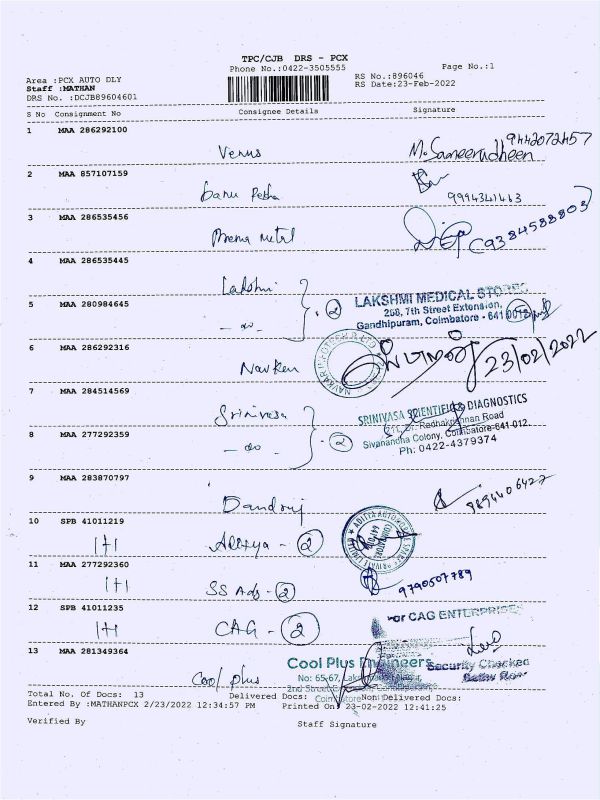 TPC/CJB DRS - PCX
Phone No.:0422-3505555
Page No.:1
Area :PCX AUTO DLY
RS No.:896046
Staff :MATHAN
RS Date:23-Feb-2022
DRS No. :DCJB89604601
S No Consignment No Consignee Details Signature
1 MAA 286292100
Venus
9442072457
2 MAA 857107159
banu
9994341443
3 MAA 286535456
(9384588803)
4 MAA 286535445
Lakshmi
2
LAKSHMI MEDICAL STORES
5 MAA 280984645
258, 7th Street Extension,
Gandhipuram, Coimbatore - 641 0012
-do-
6 MAA 286292316
23/02/2022
7 MAA 284514569
Srinivasa
SRINIVASA SCIENTIFIC & DIAGNOSTICS
Radhakrishnan Road
8 MAA 277292359
Sivanandha Colony, Coimbatore-641 012.
-do-
2
Ph: 0422-4379374
9 MAA 283870797
9894406422
10 SPB 41011219
1+1
Aditya - 2
11 MAA 277292360
1+1
SS Ads - 2
9790507789
12 SPB 41011235
For CAG ENTERPRISES
1+1
CAG - 2
13 MAA 281349364
Cool Plus Engineers
Security Checked
No: 65-67,
Cool plus
2nd Street
Total No. Of Docs: 13 Delivered Docs: Non Delivered Docs:
Entered By :MATHANPCX 2/23/2022 12:34:57 PM Printed On : 23-02-2022 12:41:25
Verified By
Staff Signature